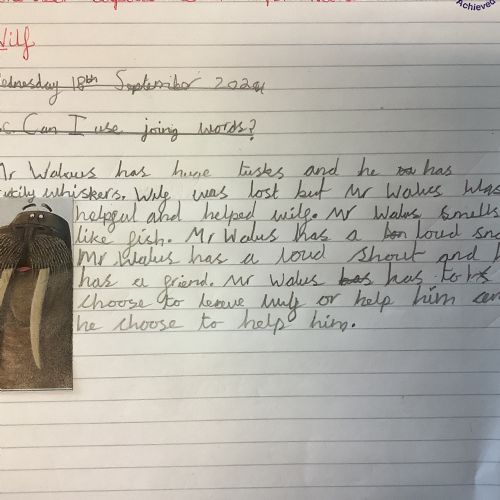 Achieved
Wilf
Wednesday 18th September 2024
Can I use joing words?
Mr Walrus has huge tusks and he has
whiskers. Wilf was lost but Mr Walus was
helpful and helped wilf. Mr Walus smells
like fish. Mr Walus has a loud
Mr Walus has a loud shout and
has a friend. Mr Walus has to
choose to leave Wilf or help him
he choose to help him.